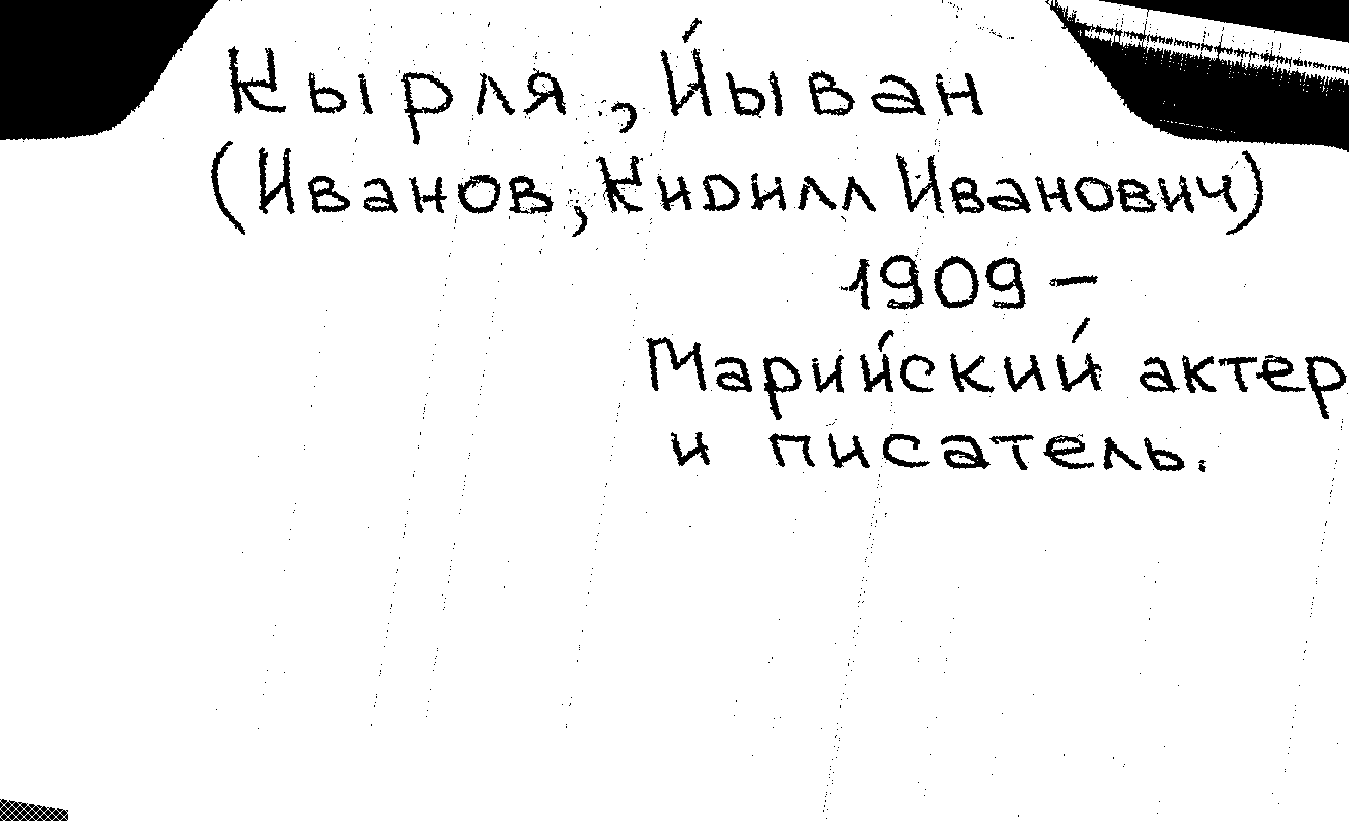 Кырля, Йыван
(Иванов, Кирилл Иванович)
1909 –
Марийский актер
и писатель.